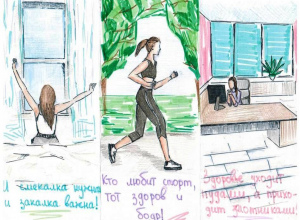 И смекалка нужна
и закалка важна!
Кто любит спорт,
тот здоров и
бодр!
Здоровье уходит
пудами, а прихо-
дит золотниками.